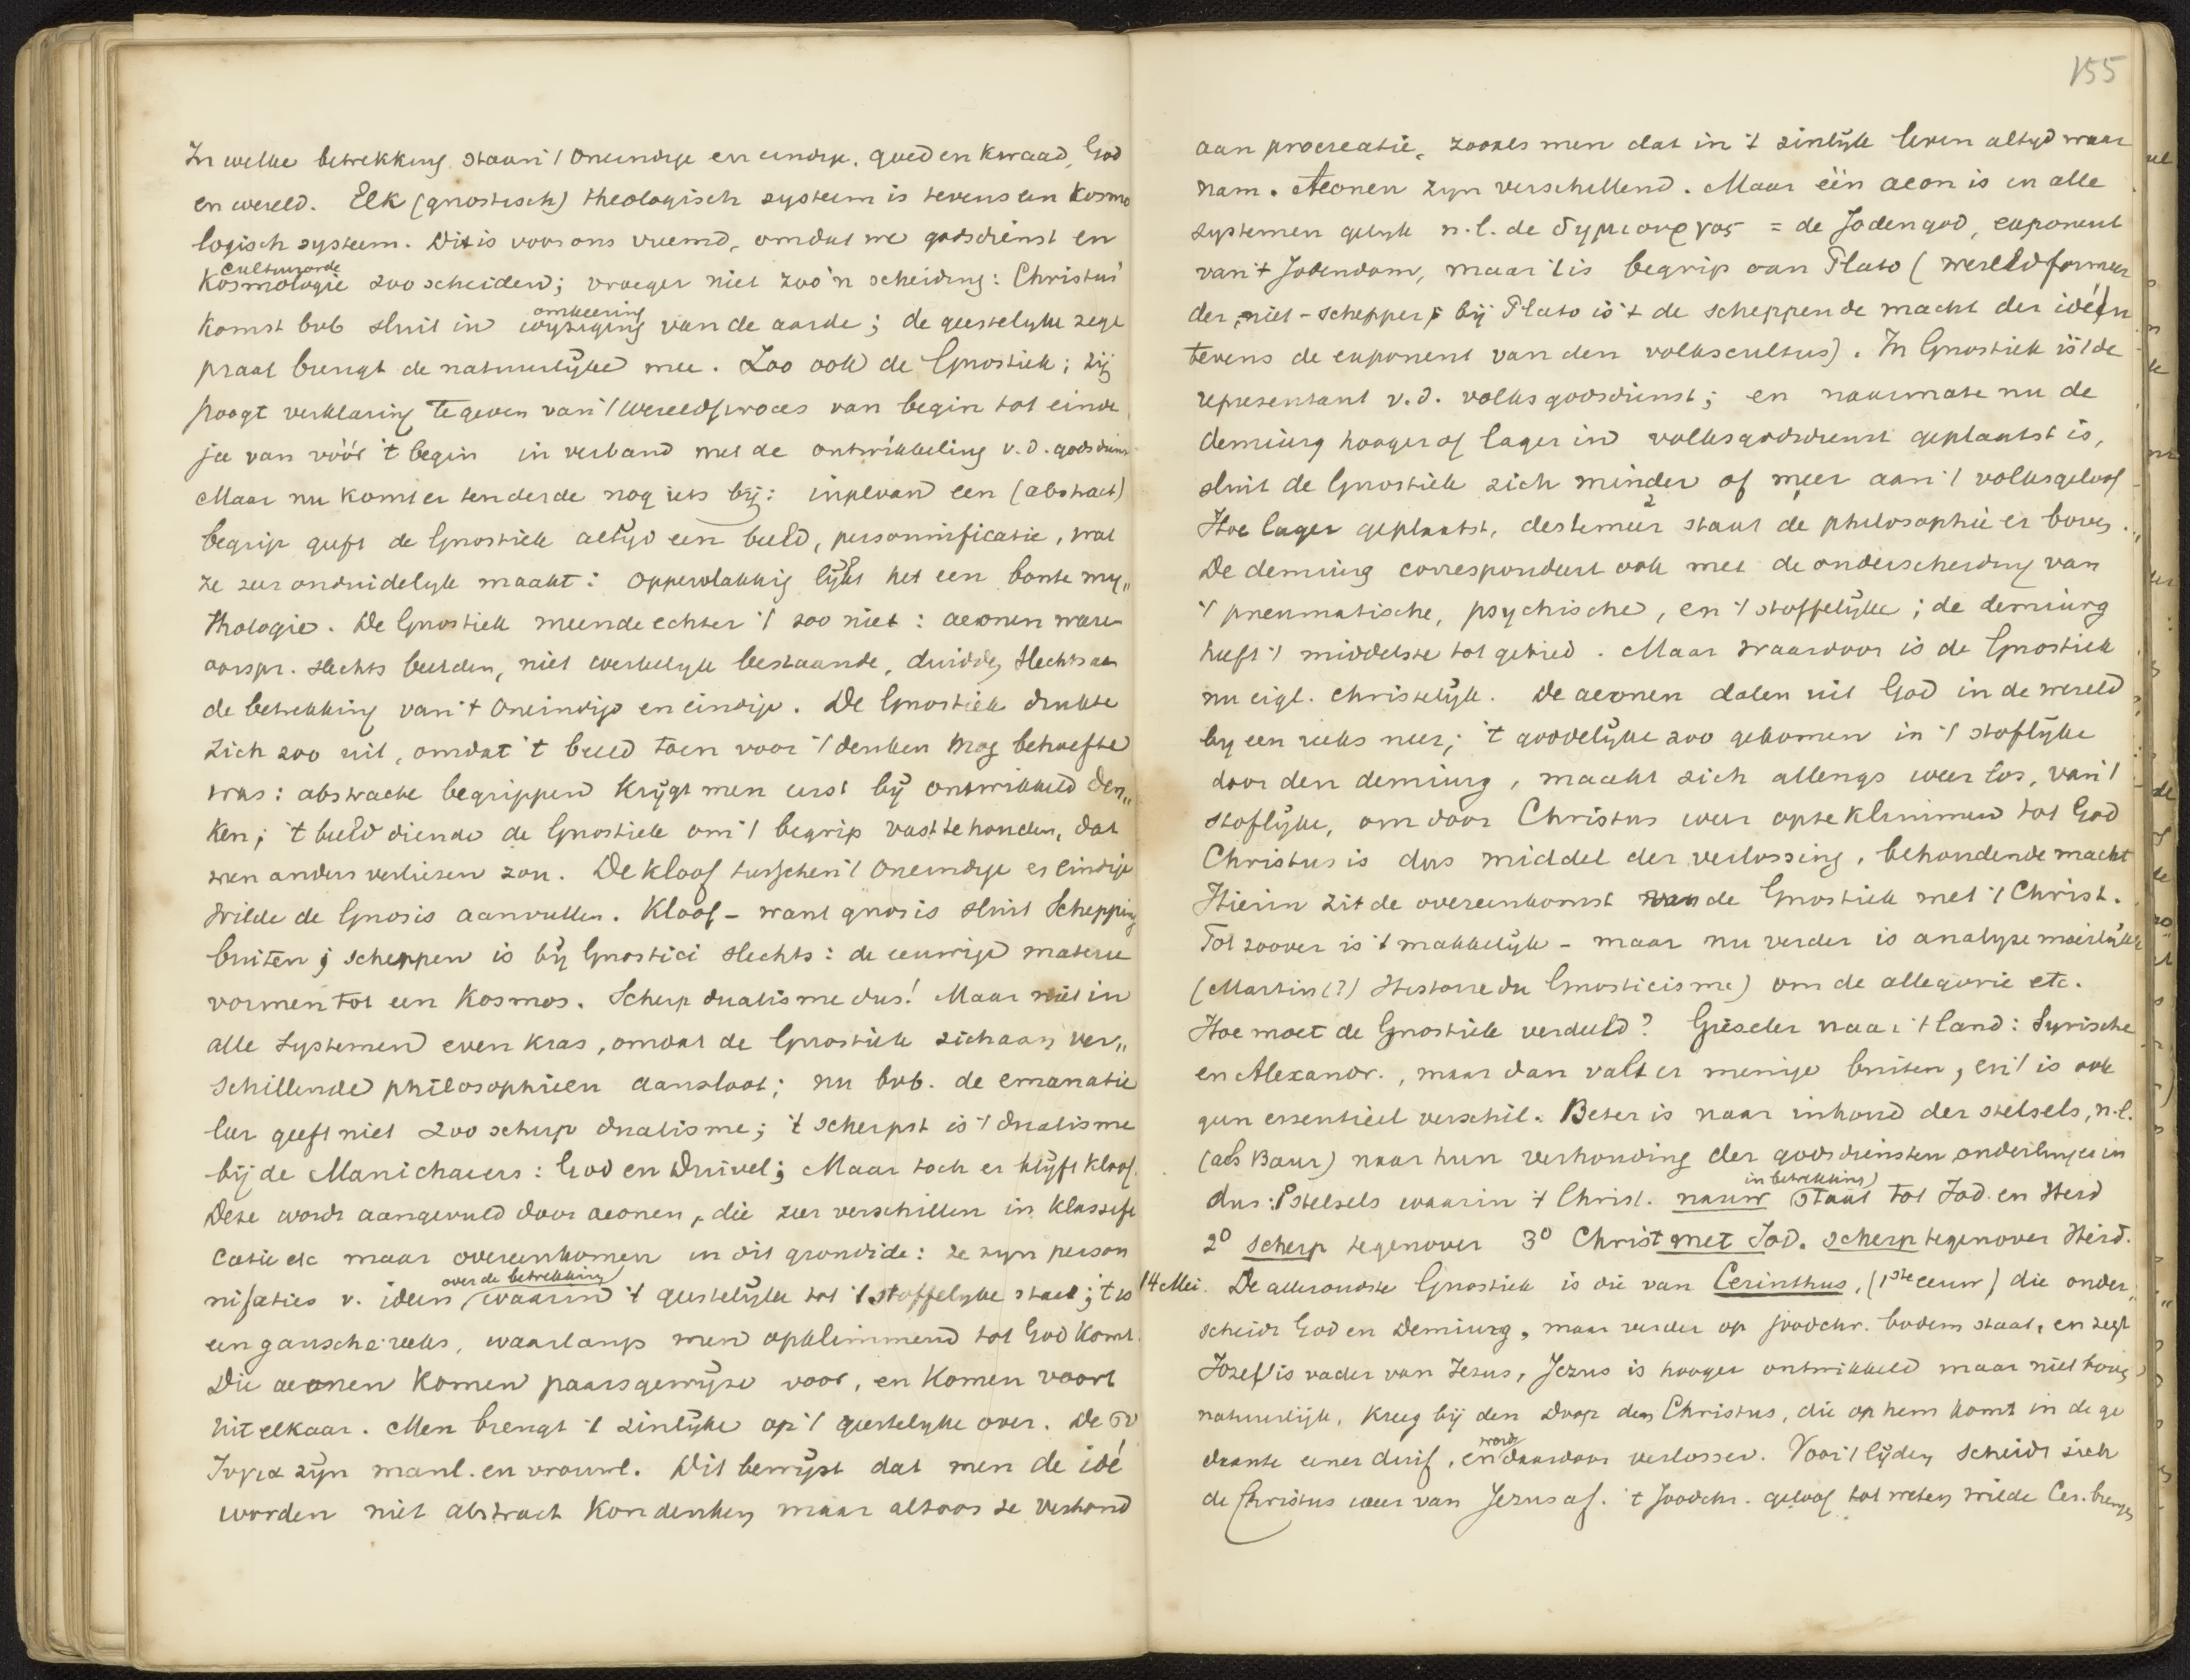 In welke betrekking staan 't oneindige en eindige, goed en kwaad, God
en wereld. Elk (gnostisch) theologisch systeem is tevens een Kosmo
logisch systeem. Dit is voor ons vreemd, omdat we godsdienst en
cultuurorde
Kosmologie zoo scheiden; vroeger niet zoo'n scheiding: Christus'
omkeering
Komst bvb sluit in wyziging van de aarde; de geestelyke zege
praal brengt de natuurlijke mee. Zoo ook de Gnostiek; zij
poogt verklaring te geven van 't wereldproces van begin tot einde
ja van vóór 't begin in verband met de ontwikkeling v. d. godsdienst
Maar nu komt er ten derde nog iets bij: in plv an een (abstract)
begrip geeft de Gnostiek altijd een beeld, personnificatie, wat
ze zeer onduidelyk maakt: oppervlakkig lijkt het een bonte my„
thologie. De Gnostiek meende echter 't zoo niet: aeonen ware
oorspr. slechts beelden, niet werkelyk bestaande, duidden slechts aan
de betrekking van 't oneindige en eindige. De Gnostiek drukte
zich zoo uit, omdat 't beeld toen voor 't denken nog behoefte
was: abstracte begrippen krijgt men eerst bij ontwikkeld den„
ken; 't beeld diende de Gnostiek om 't begrip vast te houden, dat
men anders verliezen zou. De kloof tusschen 't oneindige en eindige
wilde de Gnosis aanvullen. Kloof – want gnosis sluit Schepping
buiten; scheppen is bij Gnostici slechts: de eeuwige materie
vormen tot een Kosmos. Scherp dualisme dus! Maar niet in
alle Systemen even kras, omdat de Gnostiek zich aan ver„
schillende philosophieën aansloot; nu bvb. de emanatie
leer geeft niet zoo scherp dualisme; 't scherpst is 't dualisme
bij de Manichaeers: God en Duivel; Maar toch er blijft kloof.
Deze wordt aangevuld door aeonen, die zeer verschillen in klassifi
catie etc maar overeenkomen in dit grondidé: ze zyn person
over de betrekking
nificaties v. ideën waarin 't geestelijke tot 't stoffelyke staat; 't is
een gansche reeks, waarlangs men opklimmend tot God komt.
Die aeonen komen paarsgewijze voor, en komen voort
uit elkaar. Men brengt 't zinlijke op 't geestelyke over. De συ
ζυγια zijn manl. en vrouwl. Dit bewijst dat men de idé
worden niet abstract kon denken maar altoos ze verbond
155
aan procreatie, zooals men dat in 't zinlijk leven altyd waar
nam. Aeonen zyn verschillend. Maar één aeon is in alle
systemen gelyk n.l. de δημιουργος = de Jodengod, exponent
van 't Jodendom, maar 't is begrip van Plato (wereldformeer
der, niet-schepper; bij Plato is 't de scheppende macht der ideën
tevens de exponent van den volkscultus). In Gnostiek is 't de
representant v. d. volksgodsdienst; en naarmate nu de
demiurg hooger of lager in volksgodsdienst geplaatst is,
sluit de Gnostiek zich minder of meer aan 't volksgeloof
Hoe lager geplaatst, destemeer staat de philosophie er boven.
De demiurg correspondeert ook met de onderscheiding van
't pneumatische, psychische, en 't stoffelijke; de demiurg
heeft 't middelste tot gebied. Maar waardoor is de Gnostiek
nu eigl. christelijk. De aeonen dalen uit God in de wereld
by een reeks neer; 't goddelijke zoo gekomen in 't stoflijke
door den demiurg, maakt zich allengs weer los, van 't
stoflijke, om door Christus weer op te klimmen tot God
Christus is dus middel der verlossing, behoudende macht
Hierin zit de overeenkomst van de Gnostiek met 't Christ.
Tot zoover is 't makkelijk – maar nu verder is analyse moeilijk
(Martin (?) Histoire du Gnosticisme) om de allegorie etc.
Hoe moet de Gnostiek verdeeld? Gieseler naar 't land: Syrische
en Alexandr., maar dan valt er menige buiten, en 't is ook
geen essentieel verschil. Beter is naar inhoud der stelsels, n.l.
(als Baur) naar hun verhouding der godsdiensten onderling
in betrekking
dus: 1° Stelsels waarin 't Christ. nauw staat tot Jod. en Heid
2° scherp tegenover 3° Christ met Jod. scherp tegenover Heid.
14 Mei. De alleroudste Gnostiek is die van Cerinthus, (1ste eeuw) die onder„
scheidt God en Demiurg, maar verder op joodchr. bodem staat, en zegt
Jozef is vader van Jezus, Jezus is hooger ontwikkeld maar niet boven
natuurlijk, kreeg bij den Doop den Christus, die op hem komt in de ge
word
daante eener duif, en daardoor verlosser. Voor 't lijden scheidt zich
de Christus weer van Jezus af. 't Joodchr. geloof tot weten wilde Cer. brengen